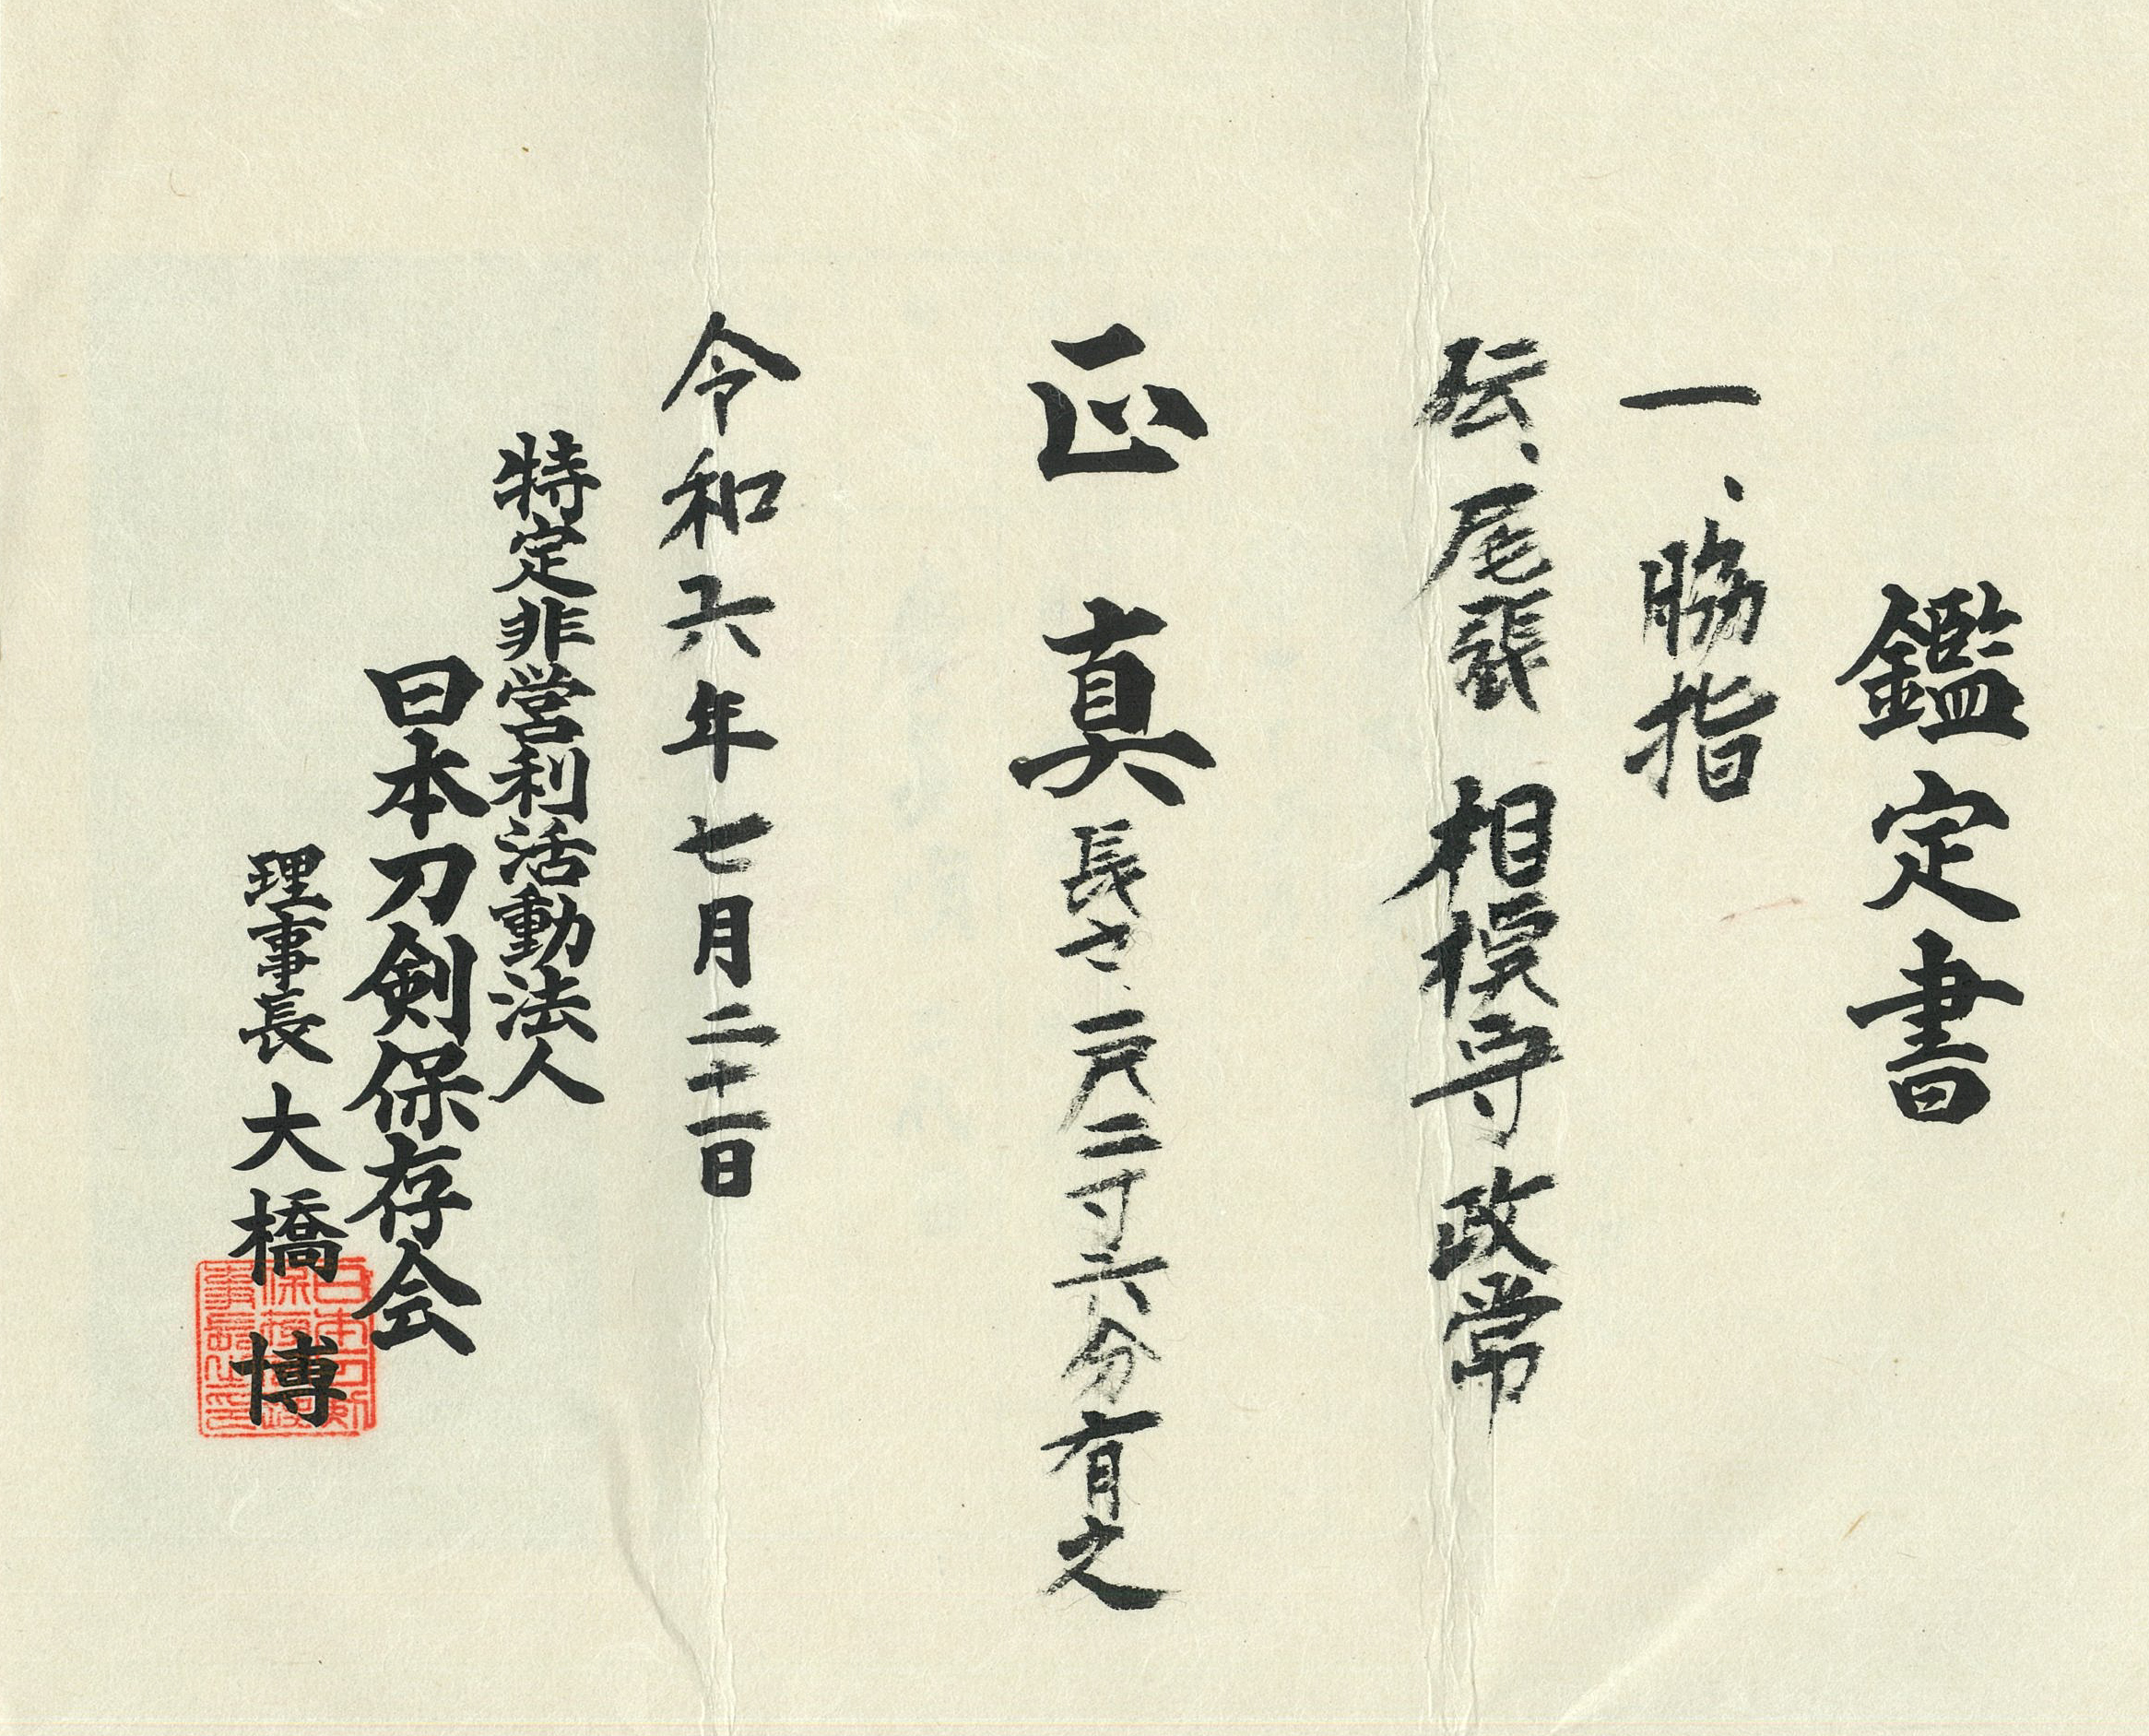 鑑定書
一、脇指
伝、尾張 相模守 政常
正真 長さ、一尺二寸六分有之
令和六年七月二十一日
特定非営利活動法人
日本刀剣保存会
理事長 大橋 博